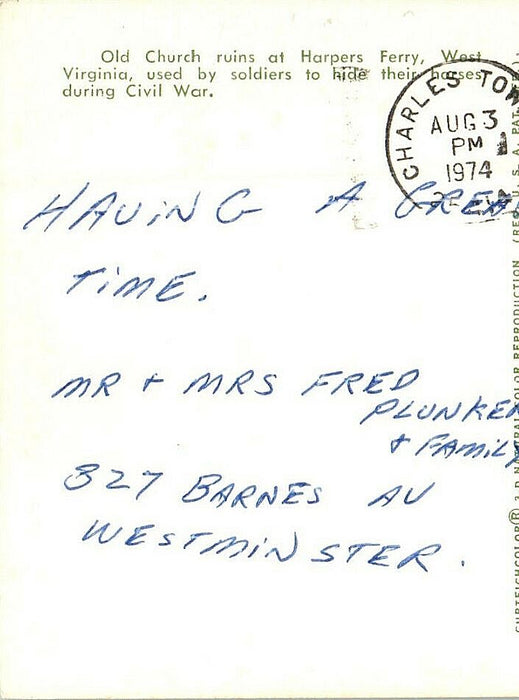 Old Church ruins at Harpers Ferry, West
Virginia, used by soldiers to hide their horses
during Civil War.
CHARLES TOW
AUG 3
PM
1974
HAVING A GREA
TIME.
MR + MRS FRED
PLUNKE
+ FAMILY
327 BARNES AV
WESTMINSTER.
CURTEICHCOLOR ® 3-D NATURAL COLOR REPRODUCTION (REG. U.S.A. PAT.